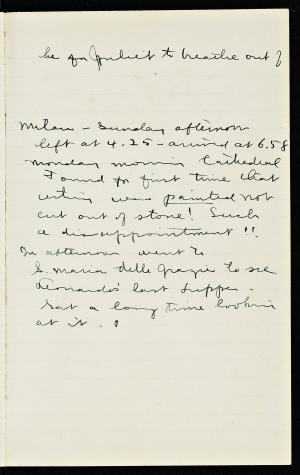 be for Juliet to breathe out of
Milan - Sunday afternoon
left at 4.25 - arrived at 6.58
Monday mornin Cathedral
Found for first time that
ceiling was painted not
cut out of stone! Such
a disappointment!!
In afternoon went to
S. Maria delle Grazie to see
Leonardo's last supper -
Sat a long time lookin
at it.